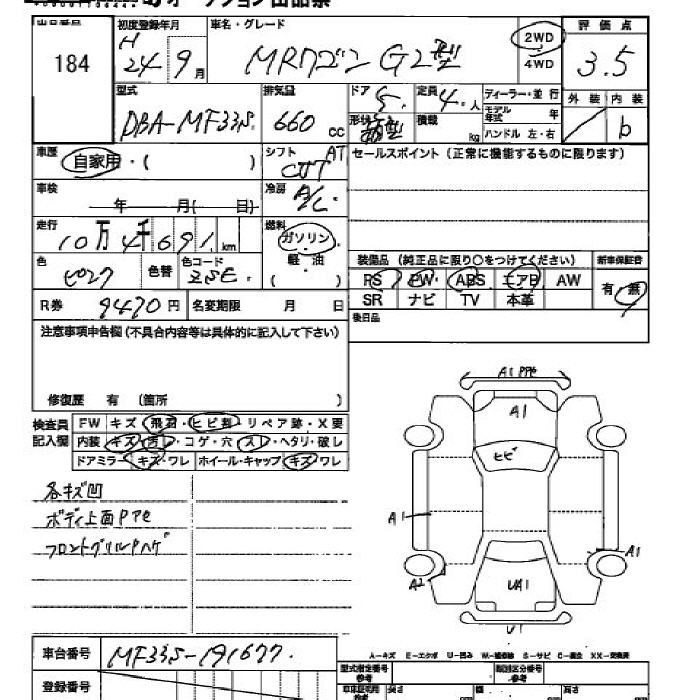 オークション出品票
出品番号 初度登録年月 車名・グレード 2WD 評価点
184 H 24 9月 MRワゴン G2型 4WD 3.5
型式 排気量 ドア 定員 ディーラー・並行 外装 内装
DBA-MF33S 660 cc 5 4人 モデル年式 年 b
形状 積載 kg ハンドル 左・右
車歴 自家用・( ) シフト AT セールスポイント(正常に機能するものに限ります)
車検 年 月( 日) 冷房 A/C
走行 10万4千691km 燃料 ガソリン 軽油 ( )
色 色替 色コード 装備品(純正品に限り○をつけてください) 新車保証書
ピンク ZSE PS PW ABS エアB AW 有・無
R券 9470円 名変期限 月 日 SR ナビ TV 本革
注意事項申告欄(不具合内容等は具体的に記入して下さい) 後日品
修復歴 有 (箇所 )
検査員記入欄 FW キズ・飛石・ヒビ割・リペア跡・X要
内装 キズ・汚レ・コゲ・穴・スレ・ヘタリ・破レ
ドアミラー キズ・ワレ ホイール・キャップ キズ・ワレ
各キズ凹
ボディ上面Pアセ
フロントグリルPハゲ
A1 Pアセ
A1
ヒビ
A1
A1
A2
UA1
U1
車台番号 MF33S-191677
A-キズ E-エクボ U-凹み W-補修跡 S-サビ C-腐食 XX-交換済
登録番号 型式指定番号 参考 類別区分番号 参考
車庫証明用 参考 長さ cm 幅 cm 高さ cm